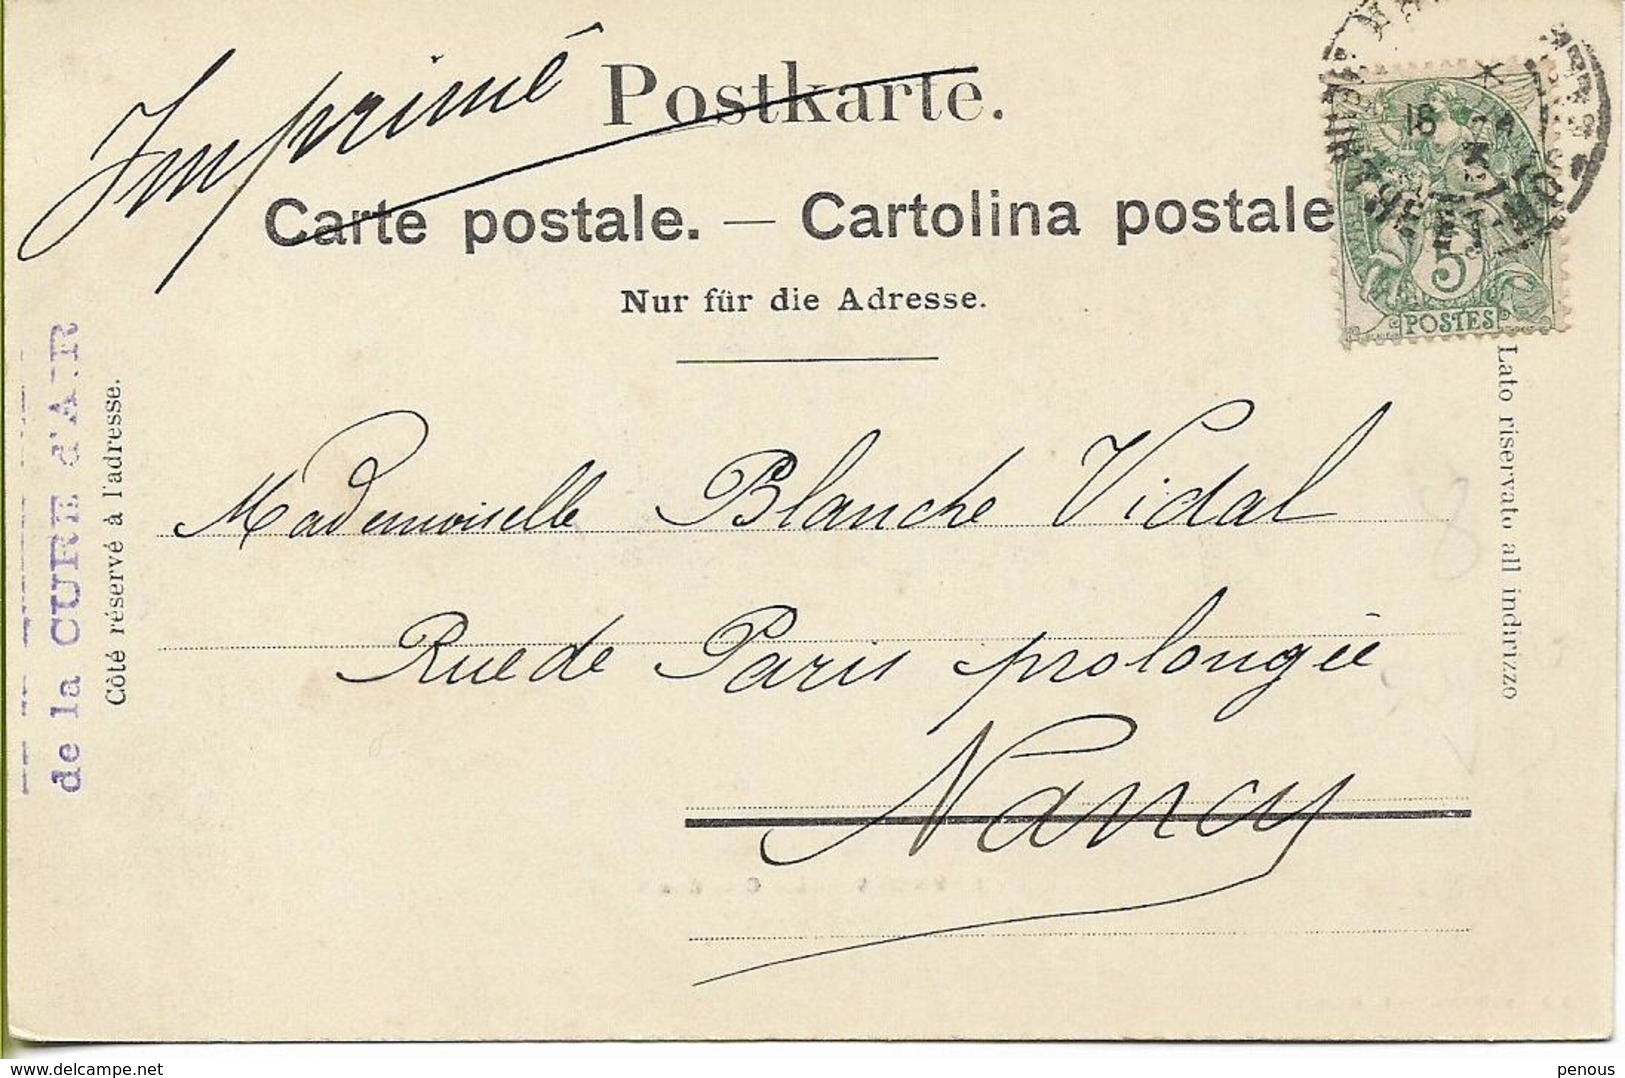 Imprimé
Postkarte.
Carte postale. — Cartolina postale
Nur für die Adresse.
5
POSTES
de la CURE d'AIR
Côté réservé à l'adresse.
Lato riservato all indirizzo
Mademoiselle Blanche Vidal
Rue de Paris prolongée
Nancy
8
penous
delcampe.net